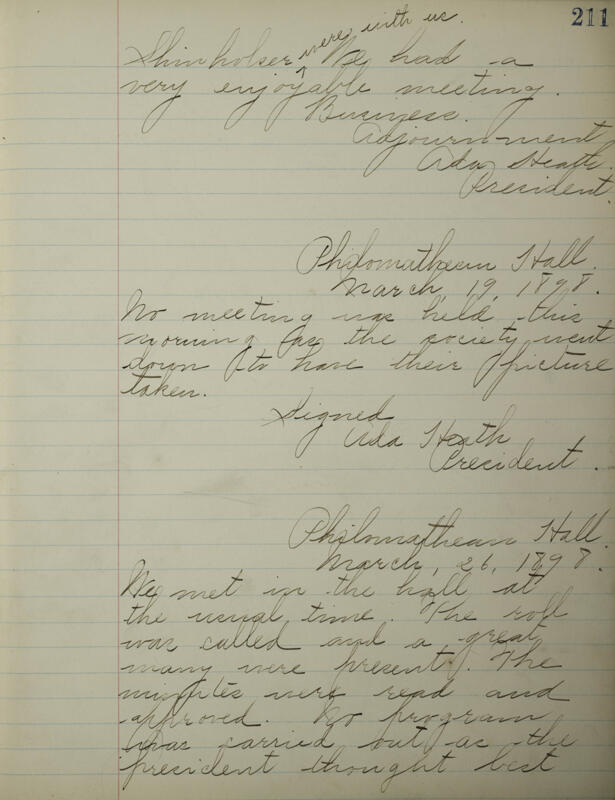 211
Shinholser were with us. We had a
very enjoyable meeting.
Business.
Adjournment
Ada Heath.
President.
Philomathean Hall.
March, 19, 1898.
No meeting was held this
morning as the society went
down to have their picture
taken.
Signed
Ada Heath
President.
Philomathean Hall.
March, 26, 1898.
We met in the hall at
the usual time. The roll
was called and a great
many were present. The
minutes were read and
approved. No program
was carried out as the
president thought best